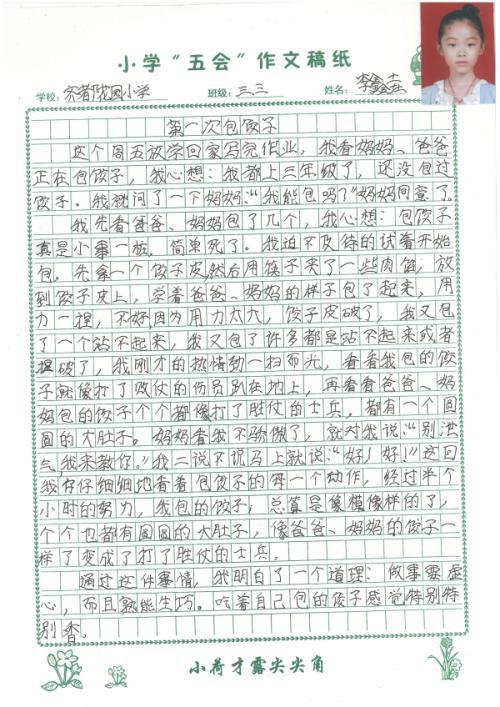 小学“五会”作文稿纸
学校：齐都花园小学 班级：三.三 姓名：李鑫垚
第一次包饺子
这个周五放学回家写完作业，我看妈妈、爸爸
正在包饺子，我心想：我都上三年级了，还没包过
饺子。我就问了一下妈妈：“我能包吗？”妈妈同意了。
我先看爸爸、妈妈包了几个，我心想：包饺子
真是小事一桩，简单死了。我迫不及待的试着开始
包。先拿一个饺子皮，然后用筷子夹了一些肉馅，放
到饺子皮上，学着爸爸、妈妈的样子包了起来，用
力一捏，不好，因为用力太大，饺子皮破了，我又包
了一个站不起来，我又包了许多都是站不起来或者
捏破了，我刚才的热情劲一扫而光，看看我包的饺
子就像打了败仗的伤员趴在地上，再看看爸爸、妈
妈包的饺子个个都像打了胜仗的士兵，都有一个圆
圆的大肚子。妈妈看我不骄傲了，就对我说：“别泄
气，我来教你。”我二说不说马上就说：“好！好！”这回
我仔仔细细地看着包饺子的每一个动作，经过半个
小时的努力，我包的饺子，总算是像模像样的了，
个个也都有圆圆的大肚子，像爸爸、妈妈的饺子一
样了变成了打了胜仗的士兵。
通过这件事情，我明白了一个道理：做事要虚
心，而且熟能生巧。吃着自己包的饺子感觉特别特
别香。
小荷才露尖尖角